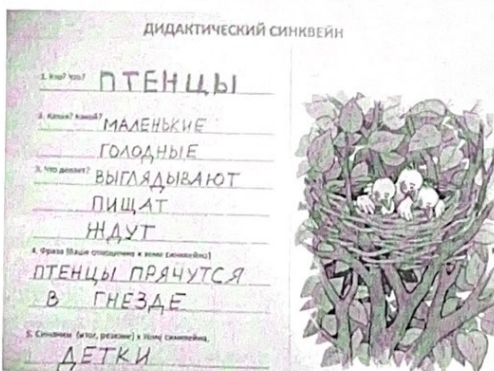 ДИДАКТИЧЕСКИЙ СИНКВЕЙН
1. Кто? Что? ПТЕНЦЫ
2. Какая? Какой? МАЛЕНЬКИЕ
ГОЛОДНЫЕ
3. Что делает? ВЫГЛЯДЫВАЮТ
ПИЩАТ
ЖДУТ
4. Фраза (Ваше отношение к теме синквейна)
ПТЕНЦЫ ПРЯЧУТСЯ
В ГНЕЗДЕ
5. Синоним (итог, резюме) к теме синквейна.
ДЕТКИ